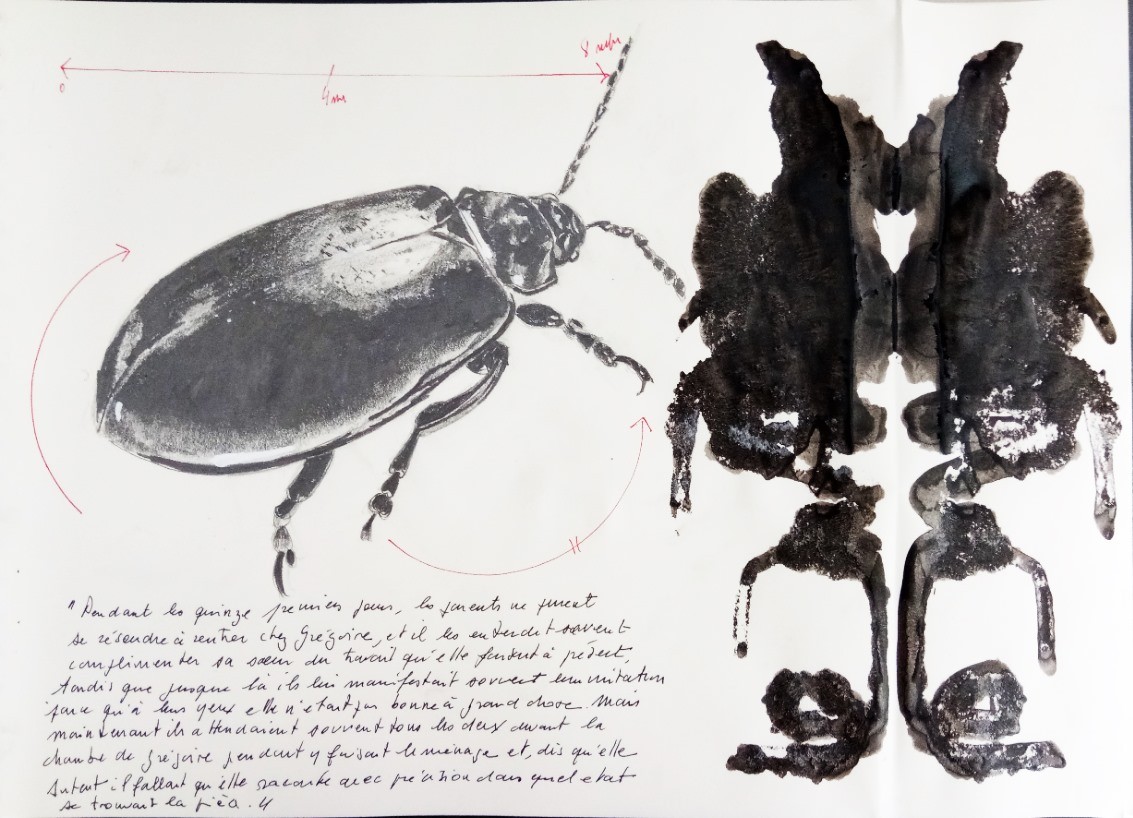 0
4mm
8
" Pendant les quinze premiers jours, les parents ne purent
se résoudre à rentrer chez Grégoire, et il les entendit souvent
complimenter sa sœur du travail qu'elle faisait à présent,
tandis que jusque là ils lui manifestait souvent leur irritation
parce qu'à leurs yeux elle n'était pas bonne à grand chose. Mais
maintenant ils attendaient souvent tous les deux devant la
chambre de Grégoire pendant y faisait le ménage et, dis qu'elle
il fallait qu'elle raconte avec précision dans quel état
se trouvait la pièce. "